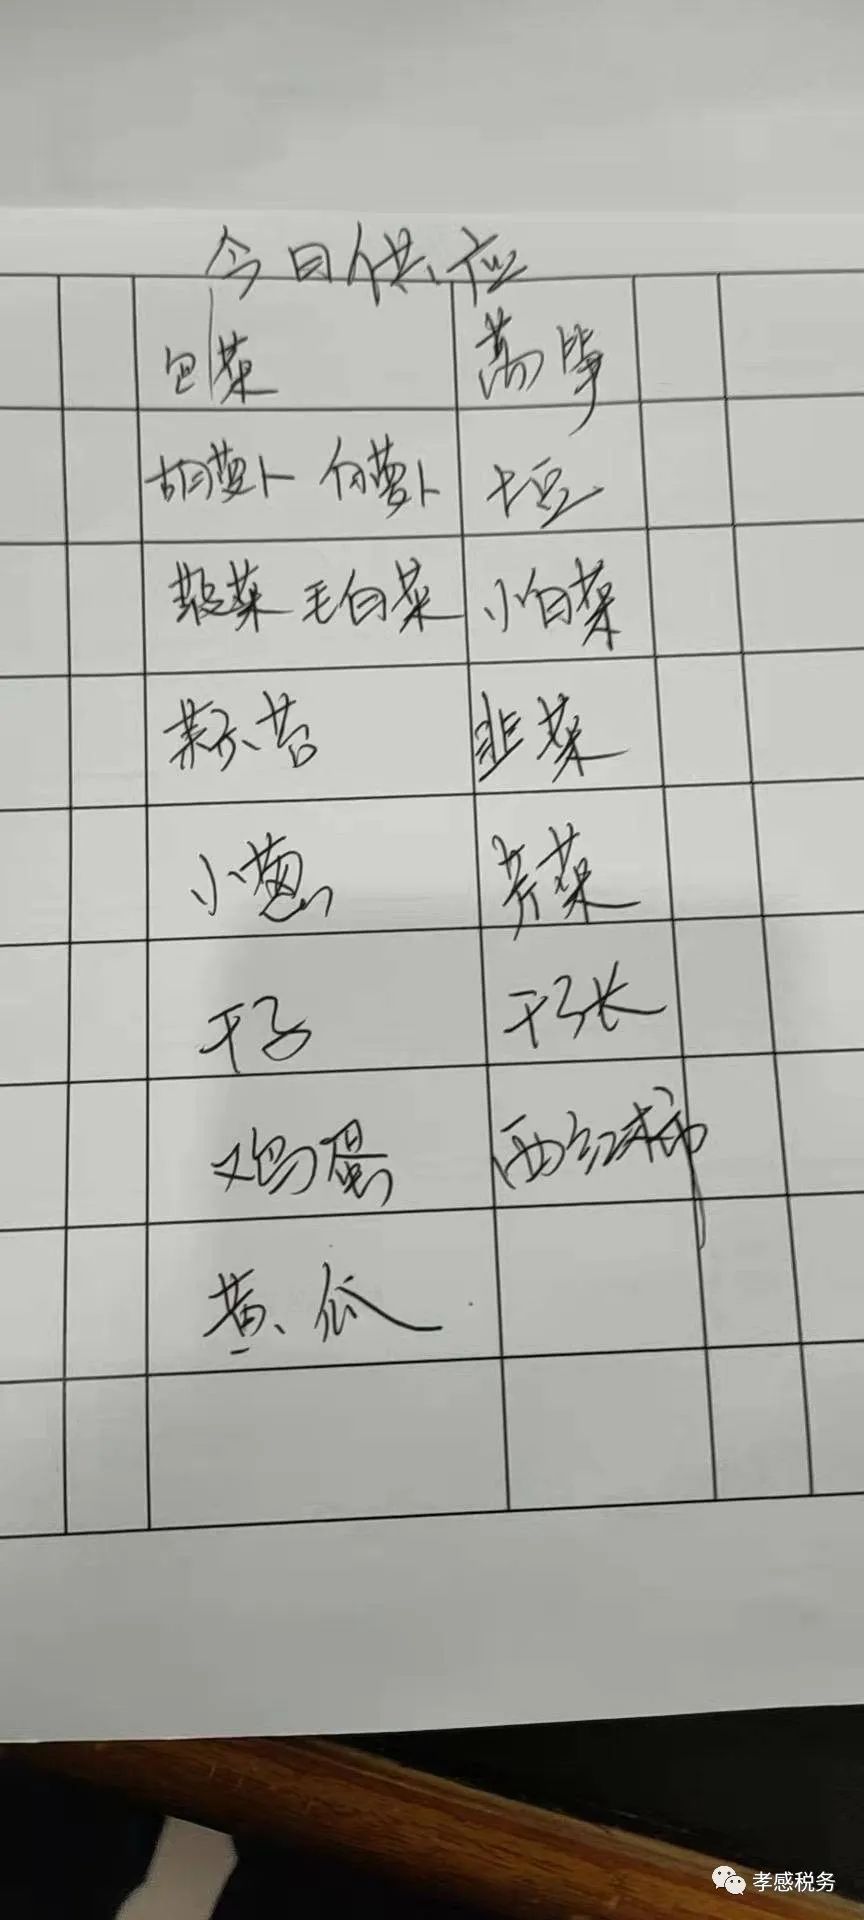 今日供应
包菜 莴笋
胡萝卜 白萝卜 土豆
菠菜 毛白菜 小白菜
蒜苔 韭菜
小葱 芹菜
干子 千张
鸡蛋 西红柿
黄瓜
孝感税务